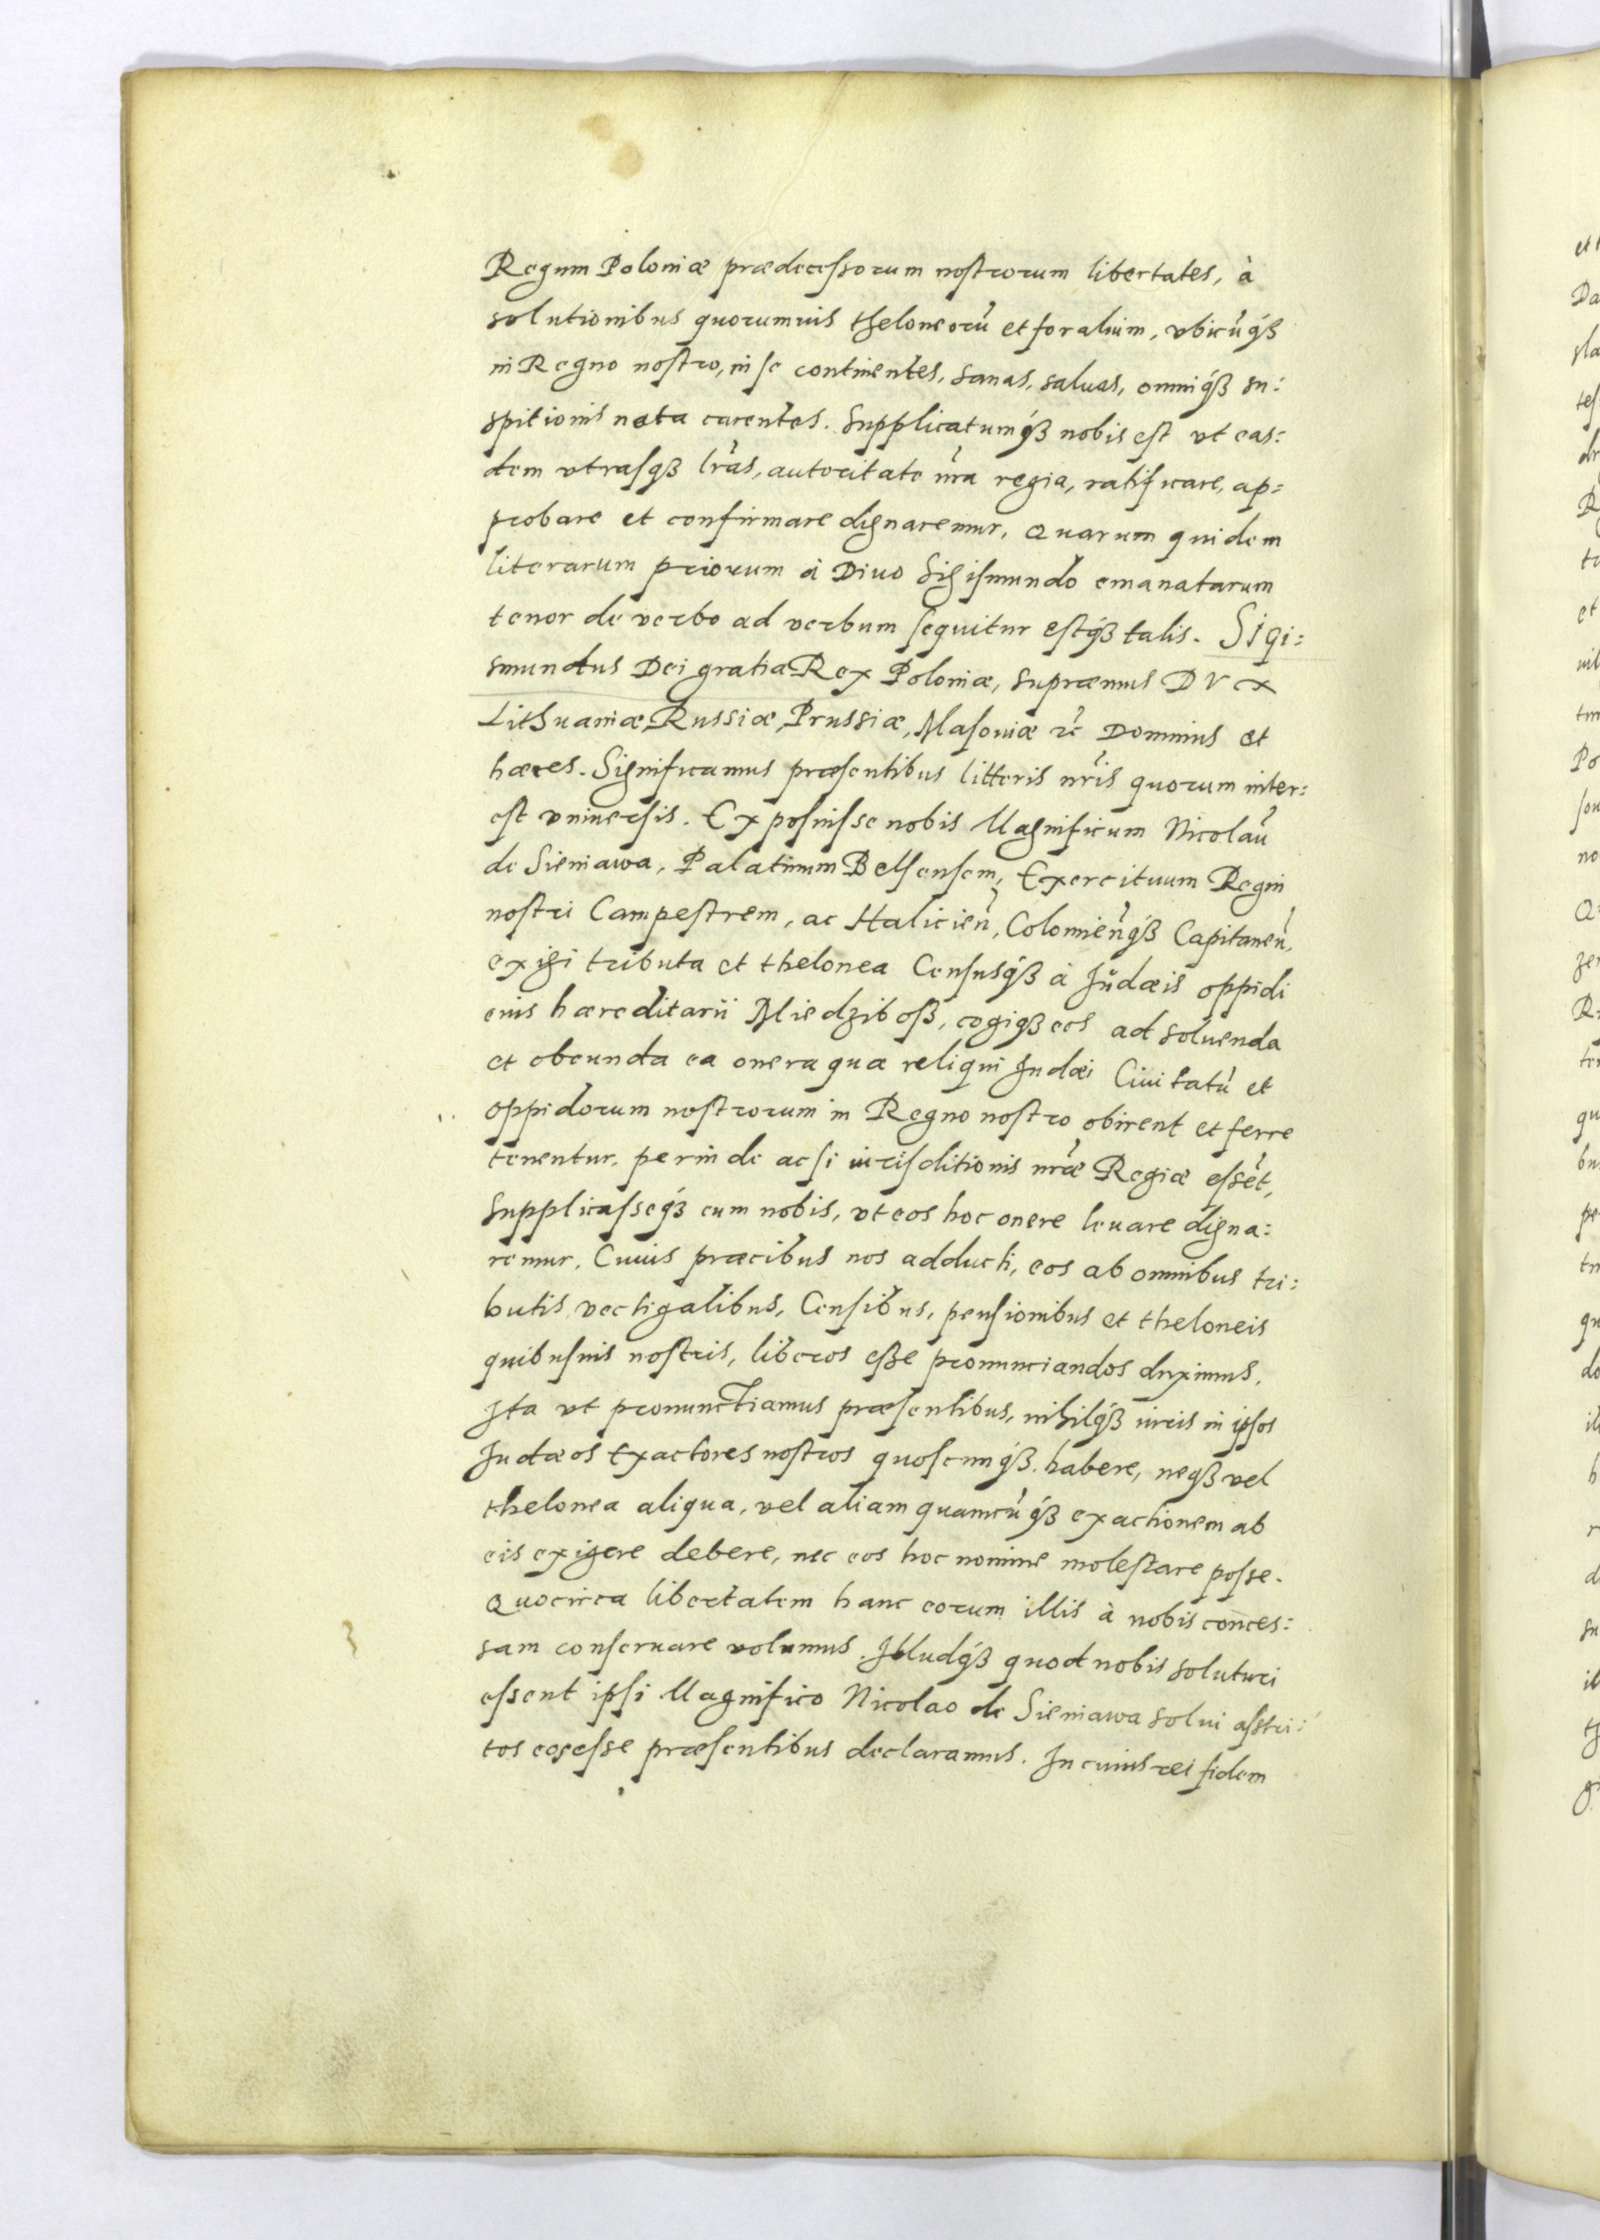 Regum Poloniæ prædecessorum nostrorum libertates, à
solutionibus quorumuis theloneorũ et foralium, vbicũq́ꝫ
in Regno nostro, in se continentes, sanas, saluas, omniq́ꝫ su:
spitionis nota carentes. Supplicatumq́ꝫ nobis est vt eas:
dem vtrasqꝫ lr̃as, autoritate nr̃a regia, ratificare, ap=
probare et confirmare dignaremur, Quarum quidem
literarum priorum à Diuo Sigismundo emanatarum
tenor de verbo ad verbum sequitur estq́ꝫ talis. Sigi:
smundus Dei gratia Rex Poloniæ, supræmus DVx
Lithuaniæ, Russiæ, Prussiæ, Masouiæ ꝛc̃ Dominus et
hæres. Significamus præsentibus litteris nr̃is quorum inter:
est vniuersis. Exposuisse nobis Magnificum Nicolaũ
de Sieniawa, Palatinum Belsensem, Exercituum Regni
nostri Campestrem, ac Halicieñ, Colomieñq́ꝫ Capitaneũ,
exigi tributa et thelonea Censusq́ꝫ à Judæis oppidi
eius hæreditarii Miedzibosz, cogiqꝫ eos ad soluenda
et obeunda ea onera quæ reliqui Judæi Ciuitatũ et
oppidorum nostrorum in Regno nostro obirent et ferre
tenentur, perinde ac si iurisditionis nr̃æ Regiæ essẽt,
Supplicasseq́ꝫ eum nobis, vt eos hoc onere leuare digna:
remur, Cuius præcibus nos adducti, eos ab omnibus tri:
butis vectigalibus, Censibus, pensionibus et theloneis
quibusuis nostris, liberos esse pronunciandos duximus,
Ita vt pronunctiamus præsentibus, nihilq́ꝫ iuris in ipsos
Judæos Exactores nostros quoscunq́ꝫ habere, neqꝫ vel
thelonea aliqua, vel aliam quamcũq́ꝫ exactionem ab
eis exigere debere, nec eos hoc nomine molestare posse.
Quocirca libertatem hanc eorum illis à nobis conces:
sam conseruare volumus. Illudq́ꝫ quod nobis soluturi
essent ipsi Magnifico Nicolao de Sieniawa solui astri:
tos eos esse præsentibus declaramus. In cuius rei fidem